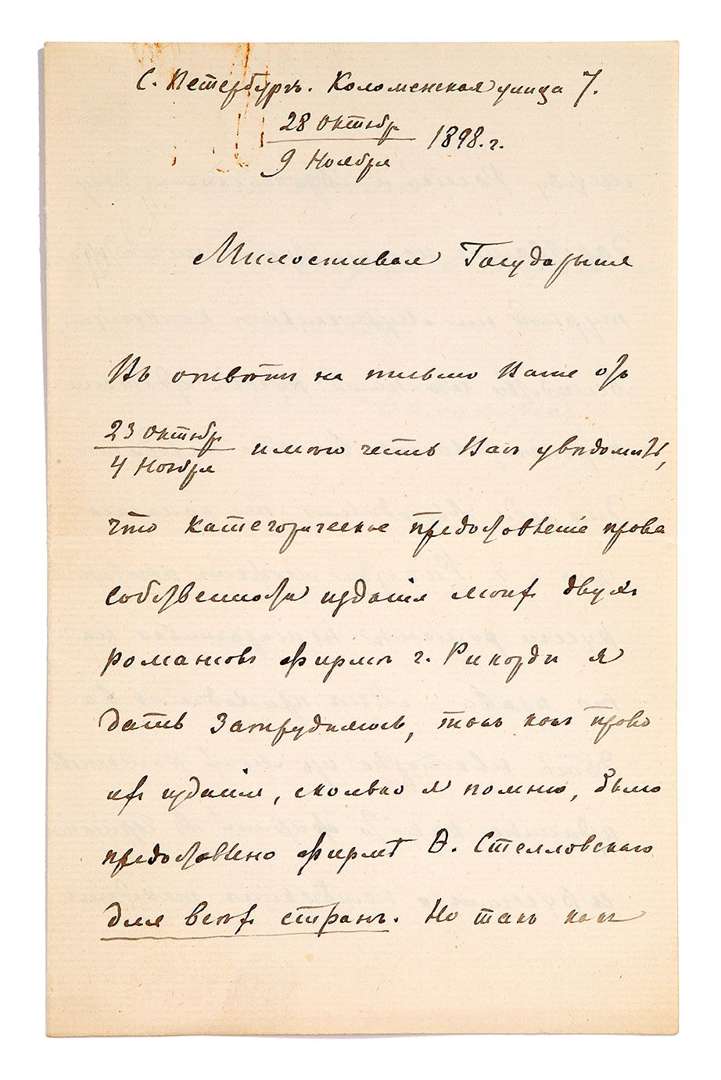 С. Петербургъ. Коломенская улица 7.
28 Октябр.
9 Ноября
1898. г.
Милостивая Государыня
Въ отвѣтъ на письмо Ваше отъ
23 Октябр
4 Ноября
имѣю честь Васъ увѣдомить,
что категорическое предоставленіе права
собственности изданія моихъ двухъ
романсовъ фирмѣ г. Рикорди я
дать затрудняюсь, такъ какъ право
ихъ изданія, сколько я помню, было
предоставлено фирмѣ Ѳ. Стелловскаго
для всѣхъ странъ. Но такъ какъ